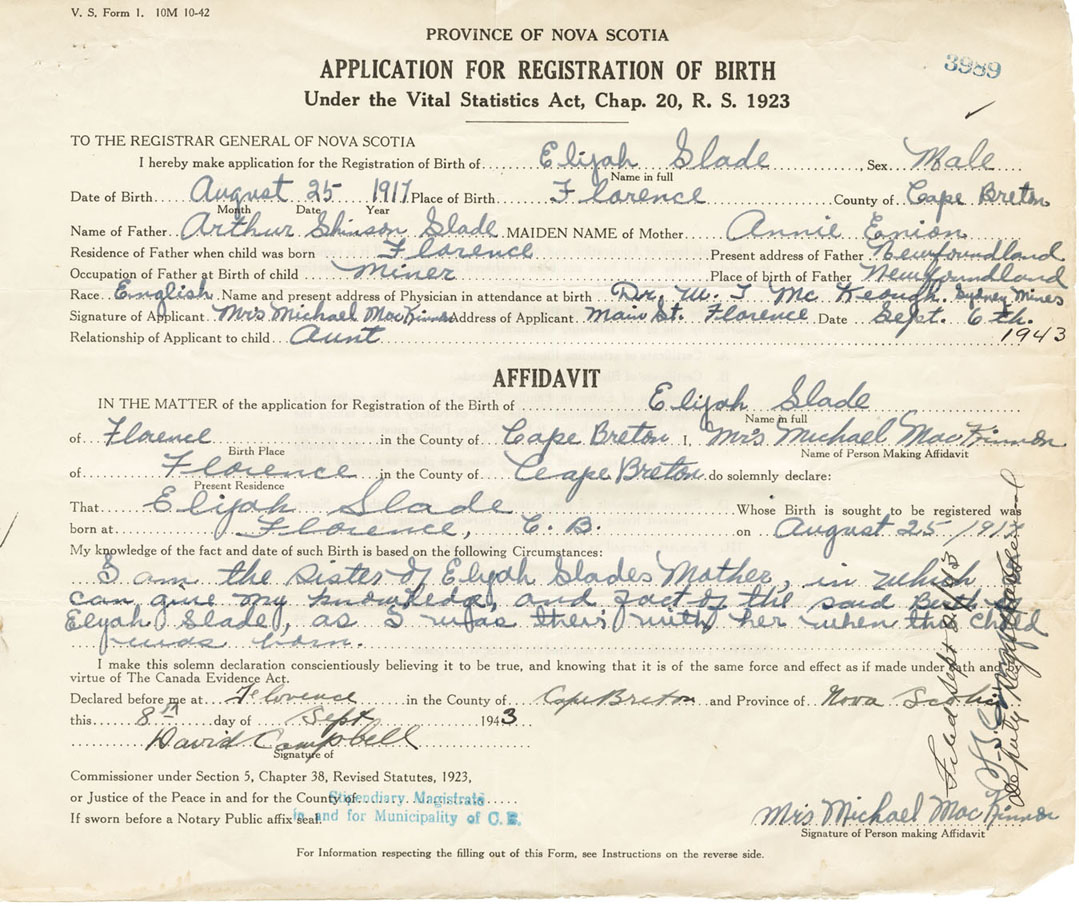 V. S. Form 1. 10M 10-42
PROVINCE OF NOVA SCOTIA
3989
APPLICATION FOR REGISTRATION OF BIRTH
Under the Vital Statistics Act, Chap. 20, R. S. 1923
TO THE REGISTRAR GENERAL OF NOVA SCOTIA
I hereby make application for the Registration of Birth of Elijah Slade, Sex Male
Name in full
Date of Birth August 25 1917 Place of Birth Florence County of Cape Breton
Month Date Year
Name of Father Arthur Slade MAIDEN NAME of Mother Annie Enion
Residence of Father when child was born Florence Present address of Father Newfoundland
Occupation of Father at Birth of child Miner Place of birth of Father Newfoundland
Race English Name and present address of Physician in attendance at birth Dr. Mc Keough. Sydney Mines
Signature of Applicant Mrs Michael MacKinnon Address of Applicant Main St. Florence Date Sept. 6th.
Relationship of Applicant to child Aunt 1943
AFFIDAVIT
IN THE MATTER of the application for Registration of the Birth of Elijah Slade
Name in full
of Florence in the County of Cape Breton I, Mrs Michael MacKinnon
Birth Place Name of Person Making Affidavit
of Florence in the County of Cape Breton do solemnly declare:
Present Residence
That Elijah Slade Whose Birth is sought to be registered was
born at Florence, C. B. on August 25 1917
My knowledge of the fact and date of such Birth is based on the following Circumstances:
I am the Sister of Elijah Slades Mother, in which
can give my knowledge, and fact of the said Birth
Elijah Slade, as I was their with her when this child
was born.
I make this solemn declaration conscientiously believing it to be true, and knowing that it is of the same force and effect as if made under oath and by
virtue of The Canada Evidence Act.
Declared before me at Florence in the County of Cape Breton and Province of Nova Scotia
this 8th day of Sept 1943
David Campbell
Signature of
Commissioner under Section 5, Chapter 38, Revised Statutes, 1923,
or Justice of the Peace in and for the County of Stipendiary Magistrate
If sworn before a Notary Public affix seal. in and for Municipality of C. B.
Mrs Michael MacKinnon
Signature of Person making Affidavit
For Information respecting the filling out of this Form, see Instructions on the reverse side.
Filed Sept
Deputy Registrar General